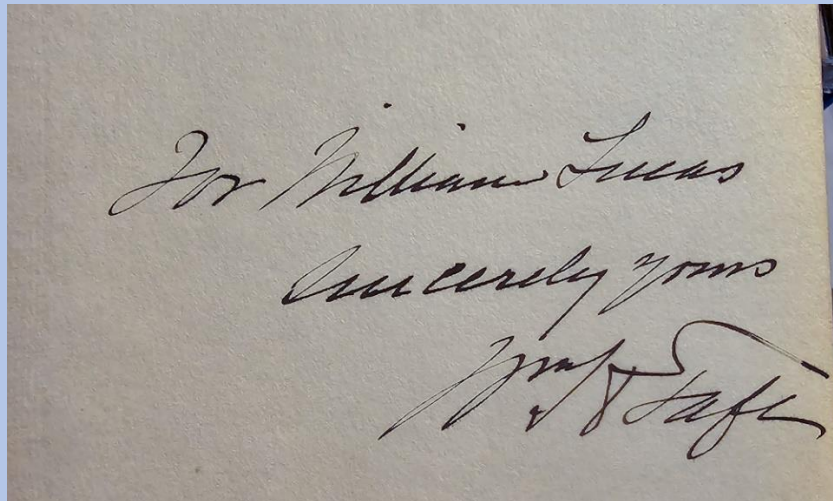 For William Lucas
Sincerely yours
Wm H Taft